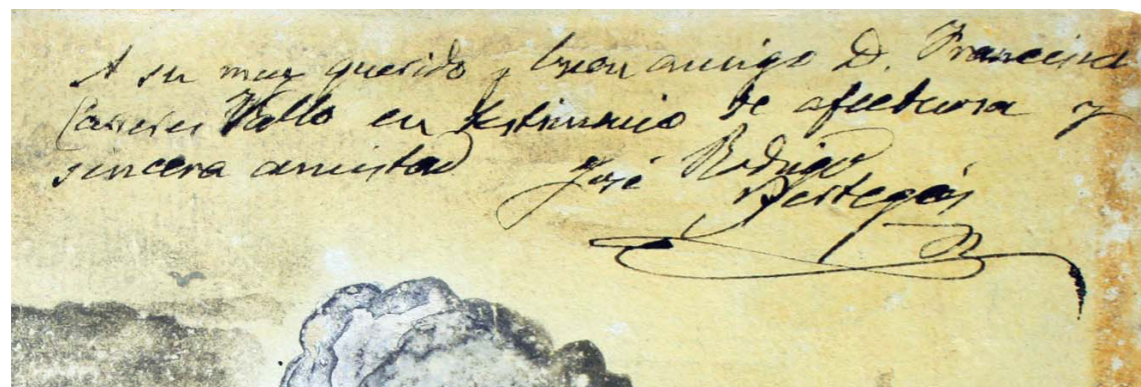 A su muy querido y buen amigo D. Francisco
Carreres Vallo en testimonio de afectuosa y
sincera amistad José Rodrigo
Pertegás